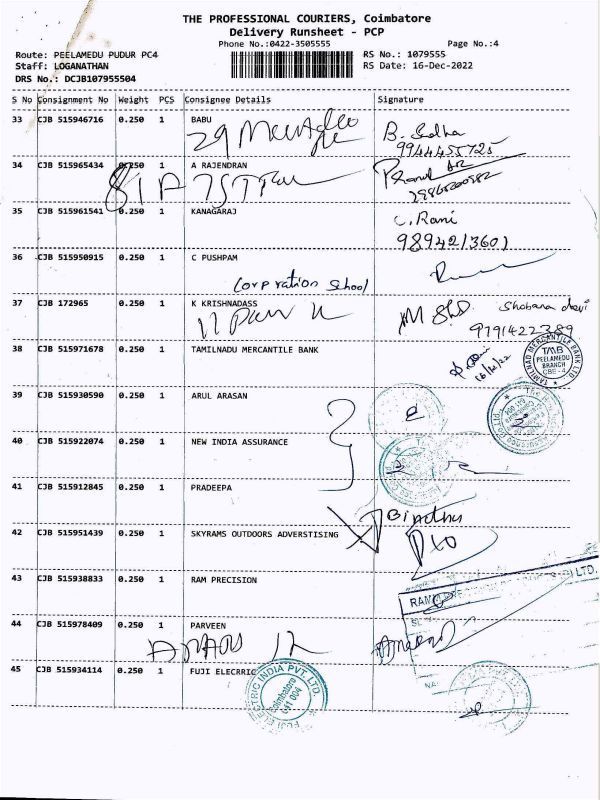 THE PROFESSIONAL COURIERS, Coimbatore
Delivery Runsheet - PCP
Phone No.:0422-3505555 Page No.:4
Route: PEELAMEDU PUDUR PC4 RS No.: 1079555
Staff: LOGANATHAN RS Date: 16-Dec-2022
DRS No.: DCJB107955504
S No Consignment No Weight PCS Consignee Details Signature
33 CJB 515946716 0.250 1 BABU
29
B. Sudha
9944455725
34 CJB 515965434 0.250 1 A RAJENDRAN
81A
35 CJB 515961541 0.250 1 KANAGARAJ
C. Rani
9894213601
36 CJB 515950915 0.250 1 C PUSHPAM
Corporation School
37 CJB 172965 0.250 1 K KRISHNADASS
11
Shobana devi
9791422389
38 CJB 515971678 0.250 1 TAMILNADU MERCANTILE BANK
16/12/22
TAMILNAD MERCANTILE BANK LTD.
TMB
PEELAMEDU
BRANCH
CBE-4
39 CJB 515930590 0.250 1 ARUL ARASAN
40 CJB 515922074 0.250 1 NEW INDIA ASSURANCE
41 CJB 515912845 0.250 1 PRADEEPA
Bindhu
42 CJB 515951439 0.250 1 SKYRAMS OUTDOORS ADVERSTISING
43 CJB 515938833 0.250 1 RAM PRECISION
LTD.
44 CJB 515978409 0.250 1 PARVEEN
45 CJB 515934114 0.250 1 FUJI ELECRRIC
FUJI ELECTRIC INDIA PVT. LTD.
Coimbatore
641 004